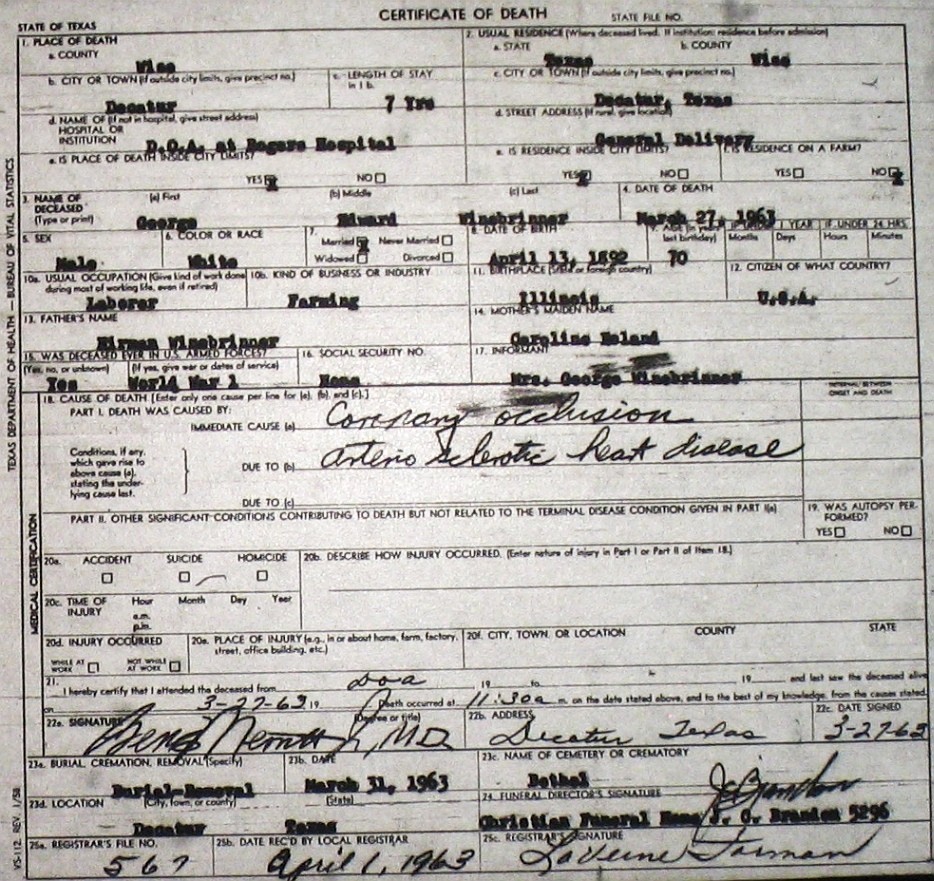 CERTIFICATE OF DEATH
STATE OF TEXAS
STATE FILE NO.
1. PLACE OF DEATH
a. COUNTY
Wise
2. USUAL RESIDENCE (Where deceased lived. If institution: residence before admission)
a. STATE
b. COUNTY
Texas
Wise
b. CITY OR TOWN (If outside city limits, give precinct no.)
c. LENGTH OF STAY in 1 b.
Decatur
7 Yrs
c. CITY OR TOWN (If outside city limits, give precinct no.)
Decatur, Texas
d. NAME OF (If not in hospital, give street address)
HOSPITAL OR
INSTITUTION
D.O.A. at Rogers Hospital
d. STREET ADDRESS (If rural, give location)
General Delivery
e. IS PLACE OF DEATH INSIDE CITY LIMITS?
YES X NO
e. IS RESIDENCE INSIDE CITY LIMITS?
YES X NO
f. IS RESIDENCE ON A FARM?
YES NO X
3. NAME OF DECEASED
(Type or print)
(a) First
(b) Middle
(c) Last
4. DATE OF DEATH
George
Edward
Winebrinner
March 27, 1963
5. SEX
Male
6. COLOR OR RACE
White
7.
Married X Never Married
Widowed Divorced
8. DATE OF BIRTH
April 13, 1892
9. AGE (In years last birthday)
70
IF UNDER 1 YEAR
Months Days
IF UNDER 24 HRS.
Hours Minutes
10a. USUAL OCCUPATION (Give kind of work done during most of working life, even if retired)
Laborer
10b. KIND OF BUSINESS OR INDUSTRY
Farming
11. BIRTHPLACE (State or foreign country)
Illinois
12. CITIZEN OF WHAT COUNTRY?
U.S.A.
13. FATHER'S NAME
Hirman Winebrinner
14. MOTHER'S MAIDEN NAME
Caroline Noland
15. WAS DECEASED EVER IN U.S. ARMED FORCES?
(Yes, no, or unknown) (If yes, give war or dates of service)
Yes World War 1
16. SOCIAL SECURITY NO.
None
17. INFORMANT
Mrs. George Winebrinner
18. CAUSE OF DEATH [Enter only one cause per line for (a), (b), and (c).]
INTERVAL BETWEEN ONSET AND DEATH
PART I. DEATH WAS CAUSED BY:
IMMEDIATE CAUSE (a)
Coronary occlusion
Conditions, if any, which gave rise to above cause (a), stating the underlying cause last.
DUE TO (b)
arterio sclerotic heart disease
DUE TO (c)
PART II. OTHER SIGNIFICANT CONDITIONS CONTRIBUTING TO DEATH BUT NOT RELATED TO THE TERMINAL DISEASE CONDITION GIVEN IN PART I(a)
19. WAS AUTOPSY PERFORMED?
YES NO
20a. ACCIDENT SUICIDE HOMICIDE
20b. DESCRIBE HOW INJURY OCCURRED. (Enter nature of injury in Part I or Part II of Item 18.)
20c. TIME OF INJURY
Hour Month Day Year
a.m.
p.m.
20d. INJURY OCCURRED
WHILE AT WORK NOT WHILE AT WORK
20e. PLACE OF INJURY (e.g., in or about home, farm, factory, street, office building, etc.)
20f. CITY, TOWN, OR LOCATION
COUNTY
STATE
21.
I hereby certify that I attended the deceased from DOA 19 to 19 and last saw the deceased alive
on 3-27-63 19 Death occurred at 11:30a m. on the date stated above, and to the best of my knowledge, from the causes stated.
22a. SIGNATURE
(Degree or title)
M.D.
22b. ADDRESS
Decatur Texas
22c. DATE SIGNED
3-27-63
23a. BURIAL, CREMATION, REMOVAL (Specify)
Burial-Removal
23b. DATE
March 31, 1963
23c. NAME OF CEMETERY OR CREMATORY
Bethel
23d. LOCATION
(City, town, or county)
(State)
Decatur
Texas
24. FUNERAL DIRECTOR'S SIGNATURE
Christian Funeral Home J. C. Brandon 5296
25a. REGISTRAR'S FILE NO.
567
25b. DATE REC'D BY LOCAL REGISTRAR
April 1, 1963
25c. REGISTRAR'S SIGNATURE
LaVerne Forman
TEXAS DEPARTMENT OF HEALTH — BUREAU OF VITAL STATISTICS
MEDICAL CERTIFICATION
VS-112, REV. 1/58